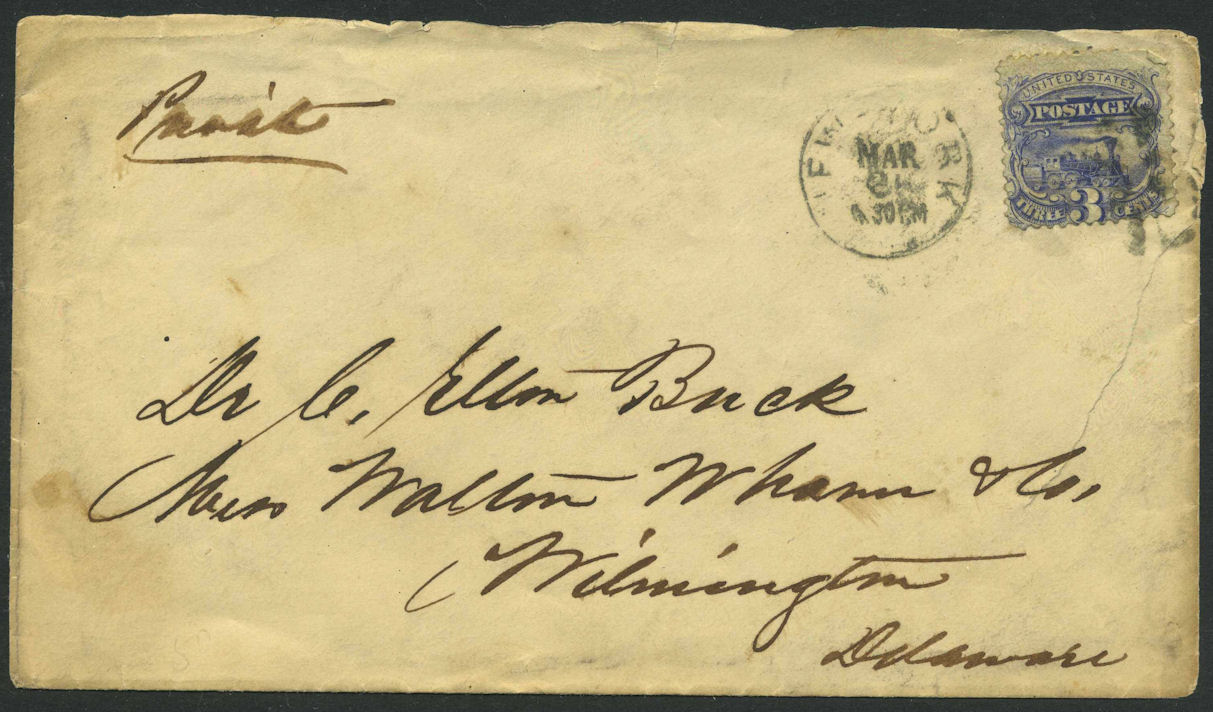 Privat
NEW YORK
MAR
30 PM
UNITED STATES
POSTAGE
THREE 3 CENTS
Dr C. Elton Buck
Mess Walton Whann & Co.
Wilmington
Delaware